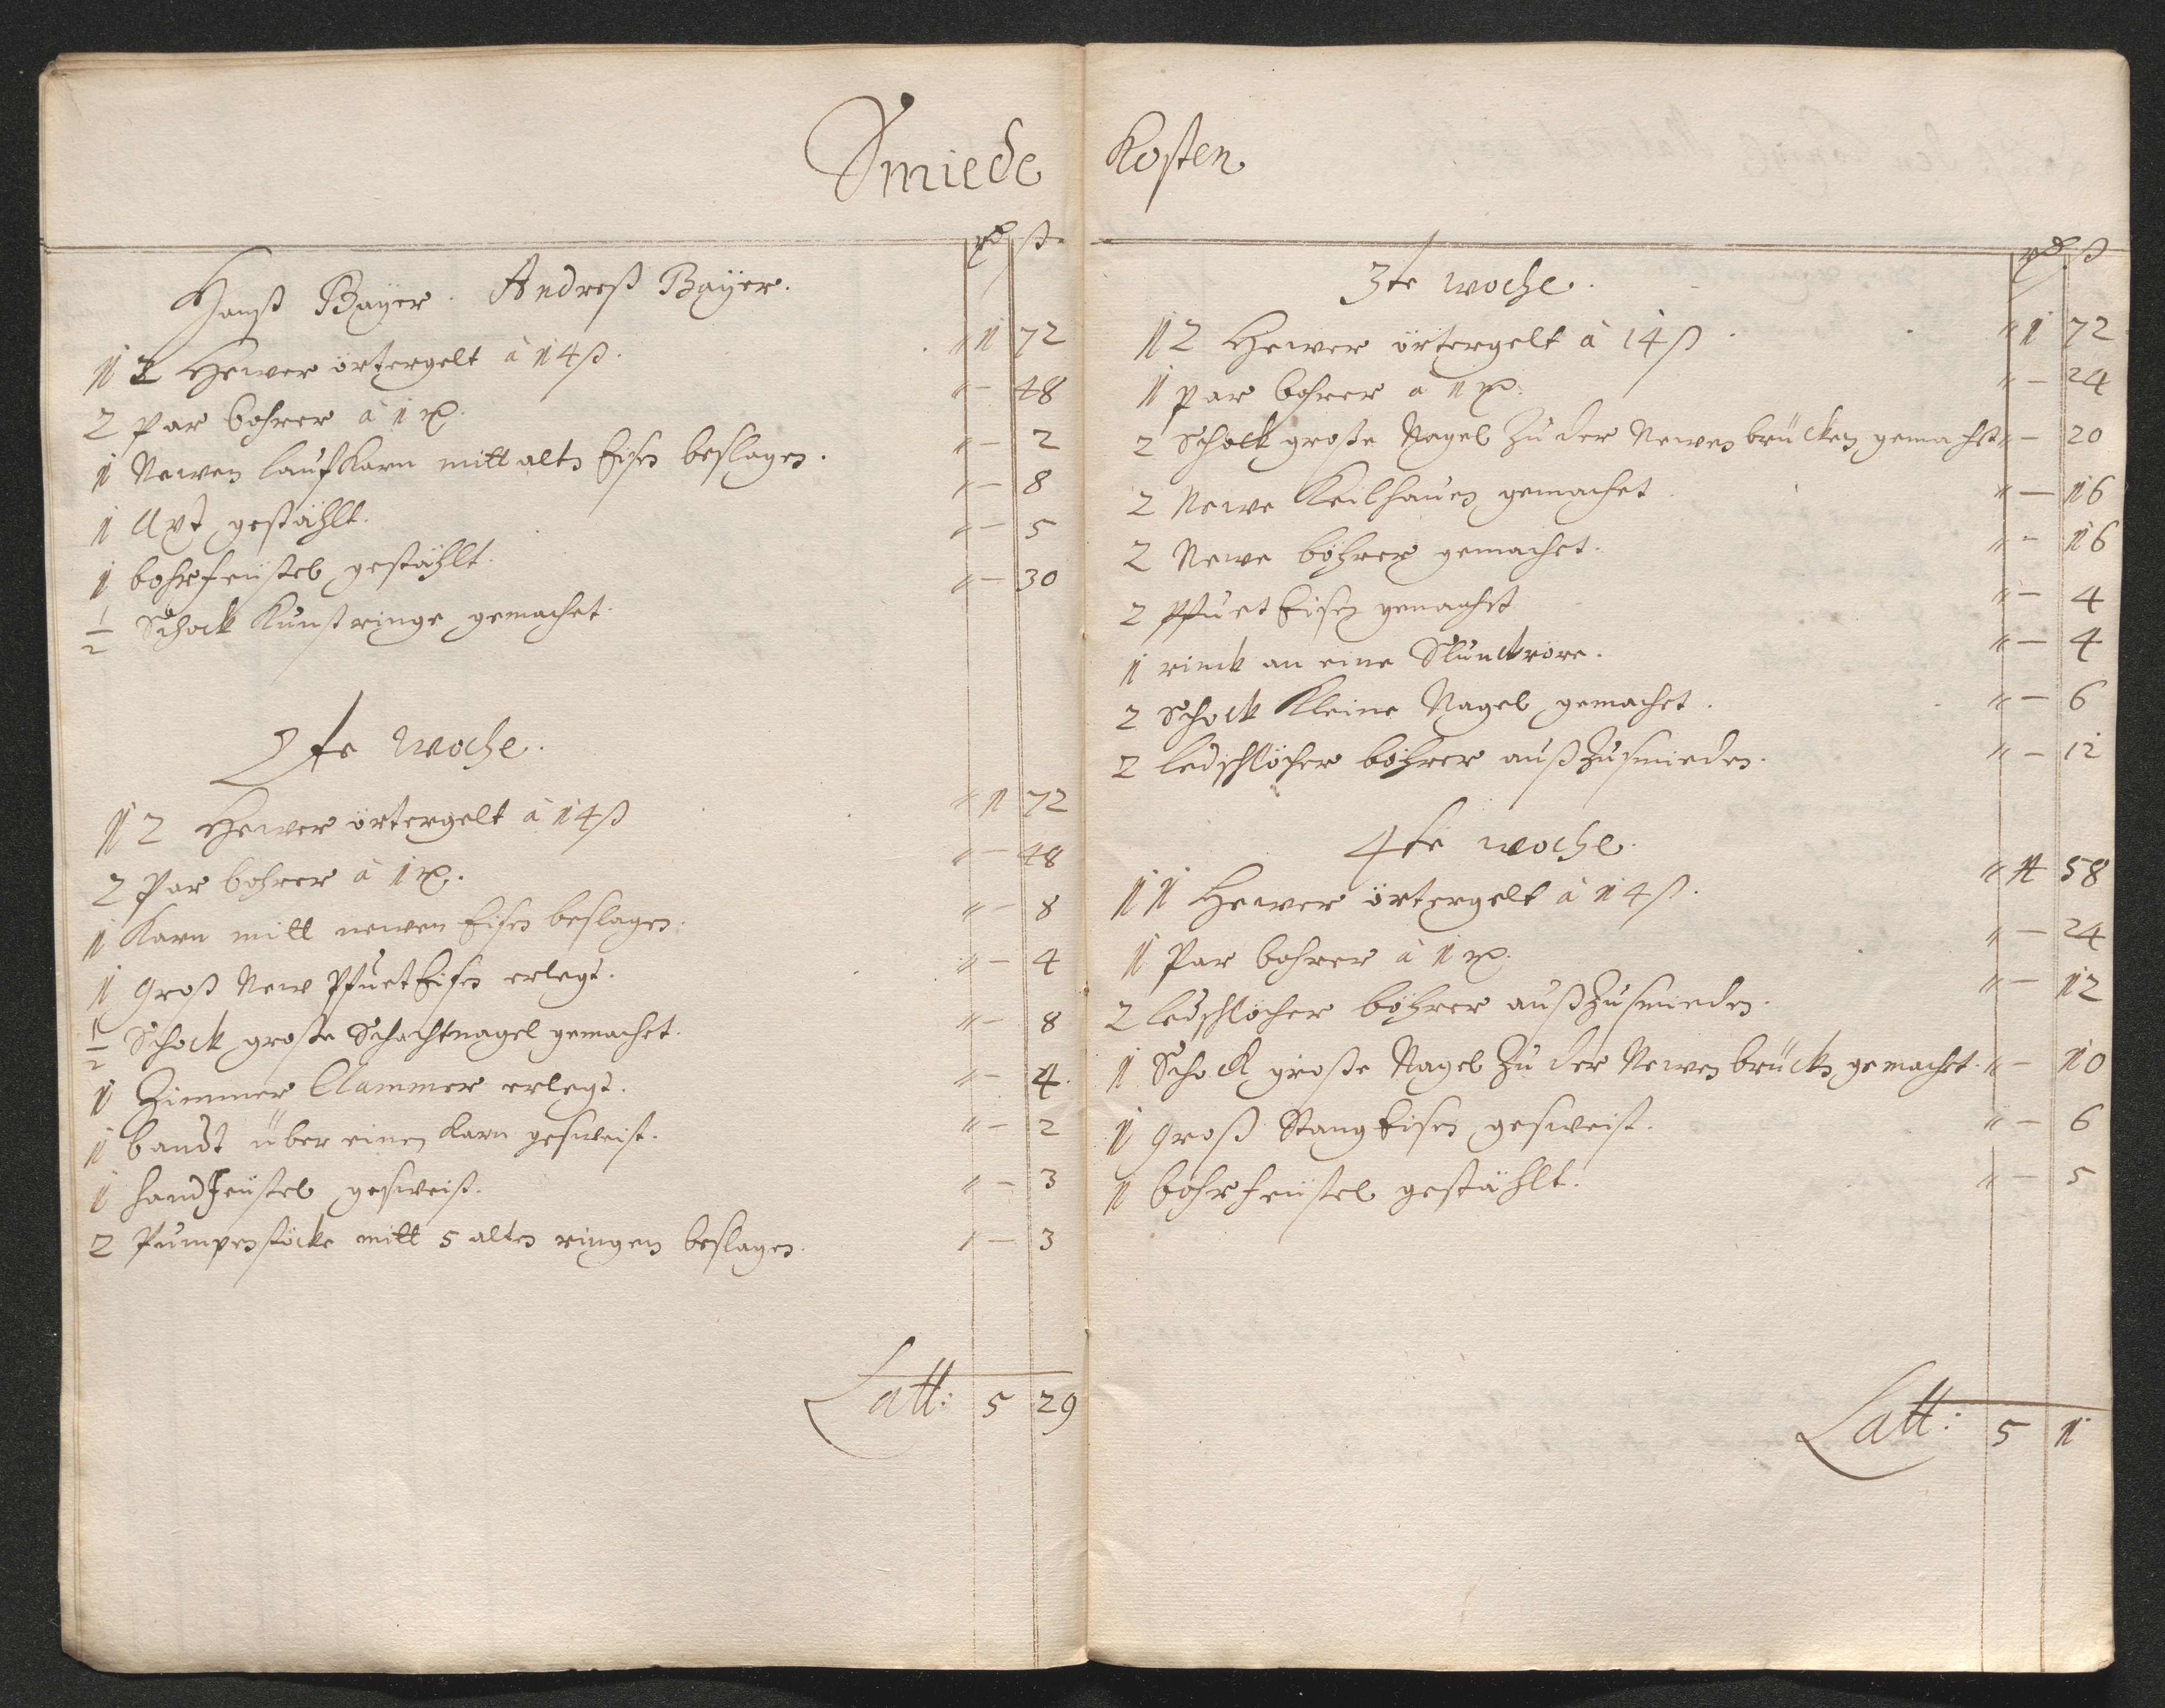 Smiede Kosten
rd ß
Hanß Bayer. Andreß Bayer.
12 Hewer örtergelt à 14ß. " 1 72
2 par bohrer à 1 rd. " - 48
1 Newen laufkarn mitt altn Eisen beslagen. " - 2
1 Axt gestählt. " - 8
1 bohrfeüstel gestählt. " - 5
1/2 Schock Kunstringe gemachet. " - 30
2te Woche.
12 Hewer örtergelt à 14ß " 1 72
2 Par bohrer à 1 rd. " - 48
1 Karn mitt newen Eisen beslagen. " - 8
1 Groß New Pfuet Eisen erlegt. " - 4
1/2 Schock große Schachtnagel gemachet. " - 8
1 Zimmer Clammer erlegt. " - 4.
1 bandt über einen Karn gesweist. " - 2
1 handfeüstel gesweist. " - 3
2 Pumpenstöcke mitt 5 alten ringen beslagen. " - 3
Latt: 5 29
rd ß
3te woche.
12 Hewer örtergelt à 14ß. " 1 72
1 par bohrer à 1 rd. " - 24
2 Schock große Nagel Zu der Newen brücken gemachet " - 20
2 Newe Keilhauen gemachet " - 16
2 Newe böhrer gemachet. " - 16
2 Pfuet Eisen gemachet " - 4
1 rinck an eine Sluncktröre. " - 4
2 Schock Kleine Nagel gemachet. " - 6
2 ledschlöcher böhrer außzusmieden. " - 12
4te woche.
11 Hewer örtergelt à 14ß. " 1 58
1 Par bohrer à 1 rd. " - 24
2 ledschlöcher böhrer außzusmieden. " - 12
1 Schock große Nagel Zu der Newen brückn gemachet. " - 10
1 Groß Stang Eisen gesweist. " - 6
1 bohrfeüstel gestählt. " - 5
Latt: 5 1